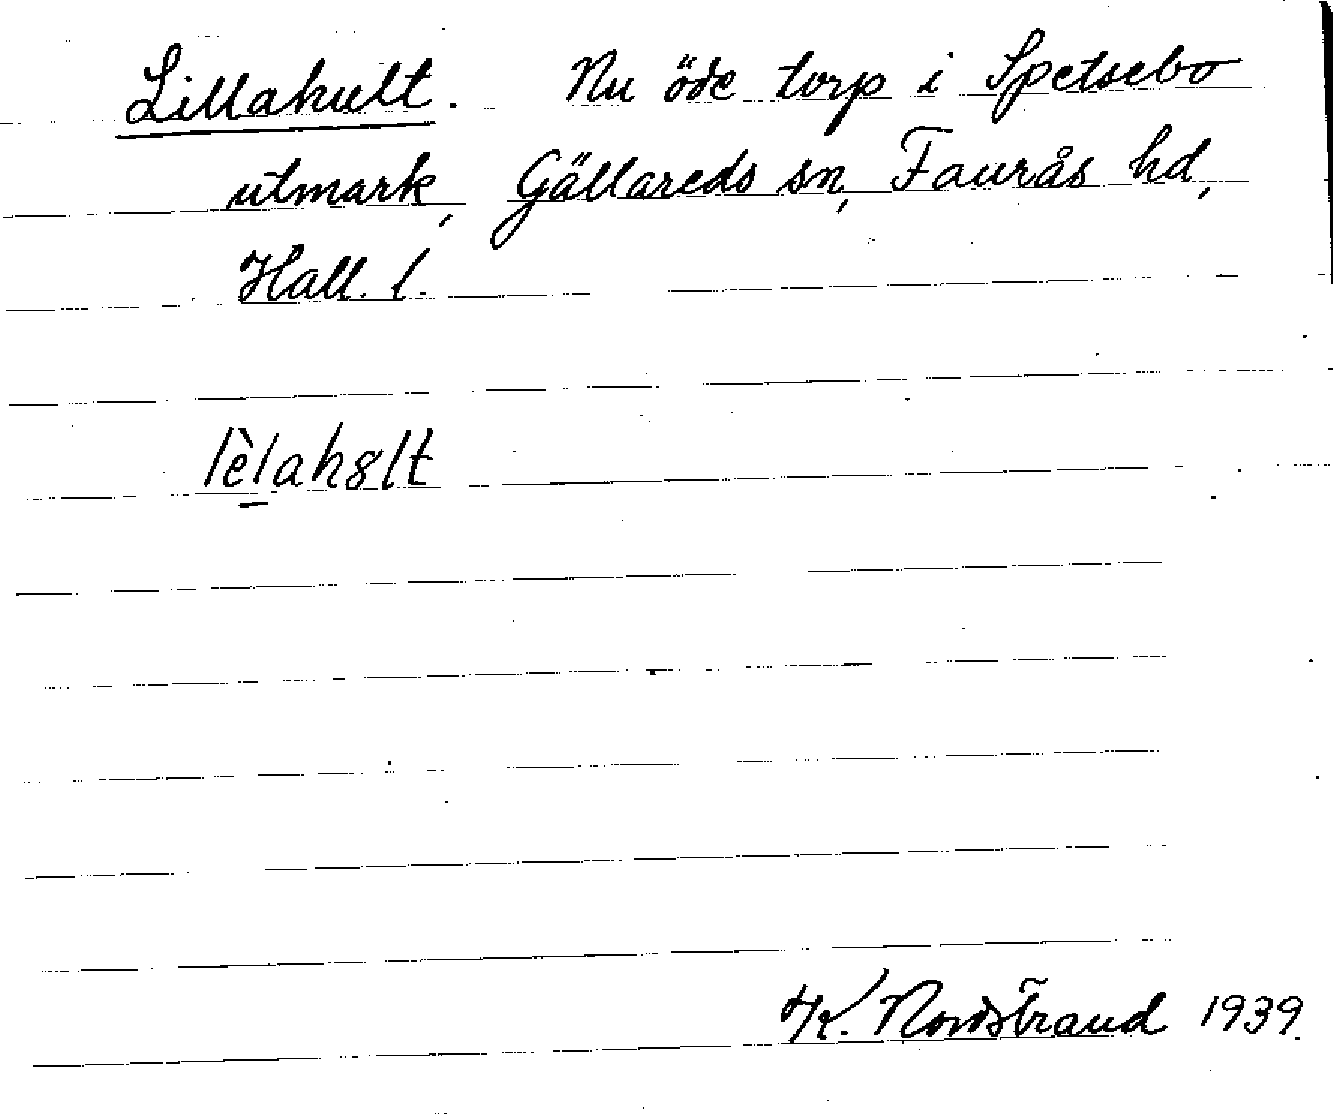 Lillahult. Nu öde torp i Spetsebo
utmark, Gällareds sn, Faurås hd,
Hall. l.
lèlah8lt
K. Nordstrand 1939.